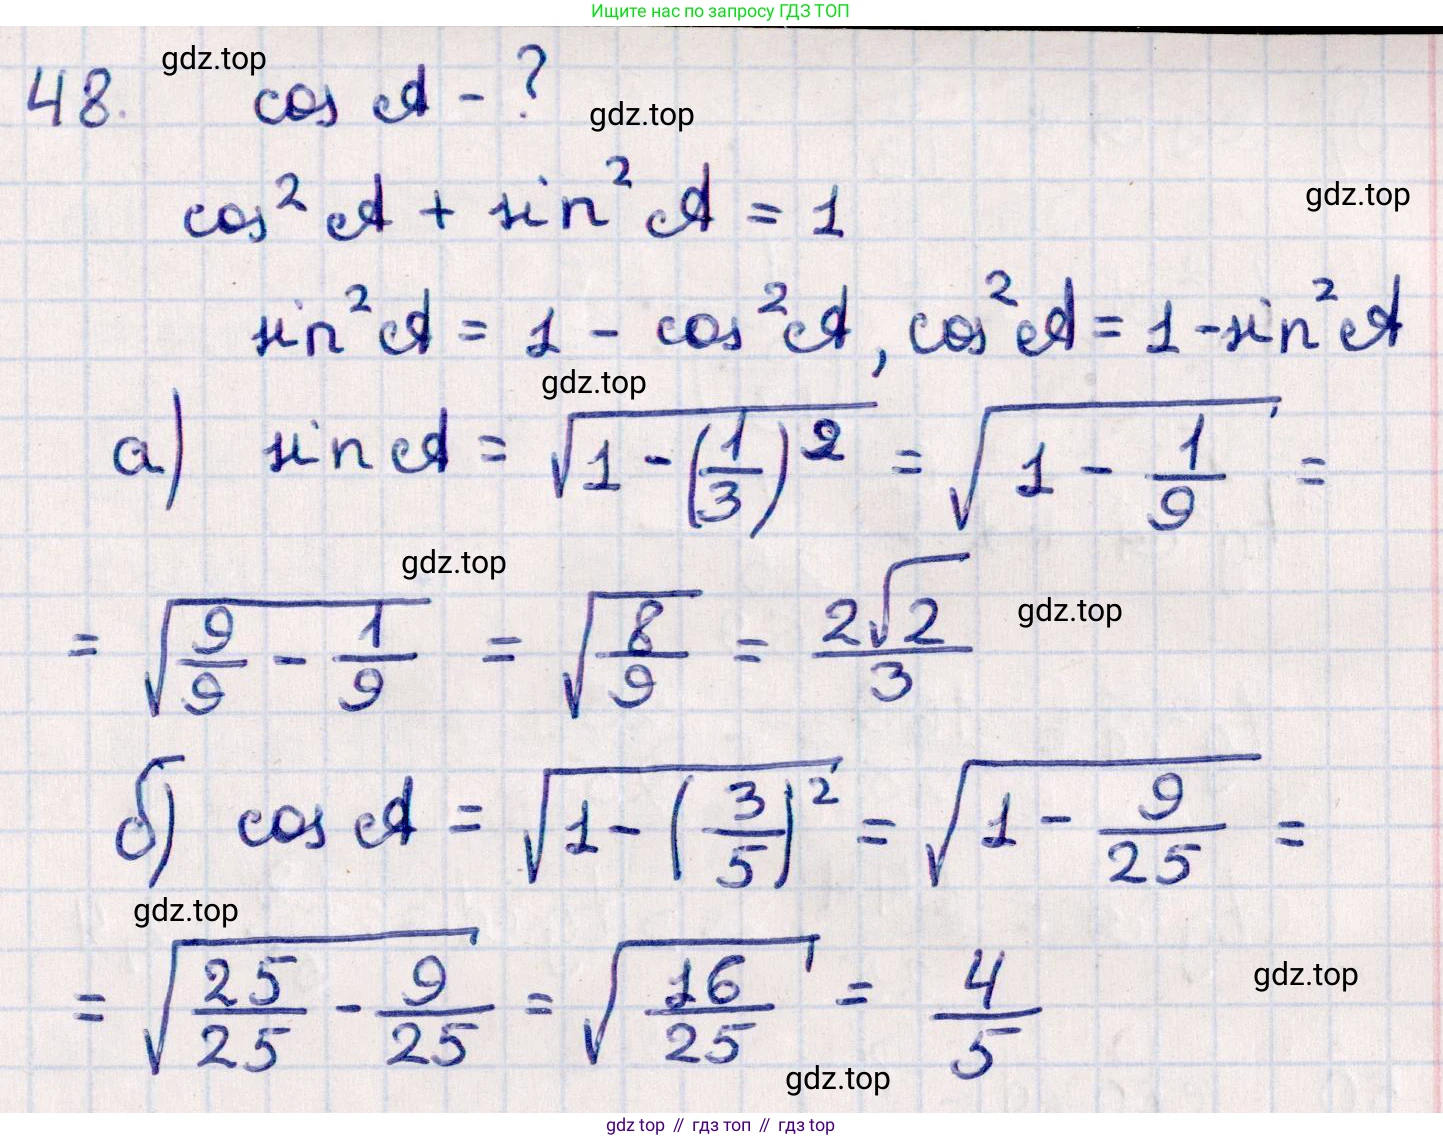 Ищите нас по запросу ГДЗ ТОП
gdz.top
48. cos A - ?
gdz.top
cos² A + sin² A = 1
gdz.top
sin² A = 1 - cos² A, cos² A = 1 - sin² A
gdz.top
а) sin A = √(1 - (1/3)²) = √(1 - 1/9) =
gdz.top
= √(9/9 - 1/9) = √(8/9) = 2√2/3
gdz.top
б) cos A = √(1 - (3/5)²) = √(1 - 9/25) =
gdz.top
= √(25/25 - 9/25) = √(16/25) = 4/5
gdz.top
gdz.top
gdz top // гдз топ // гдз top